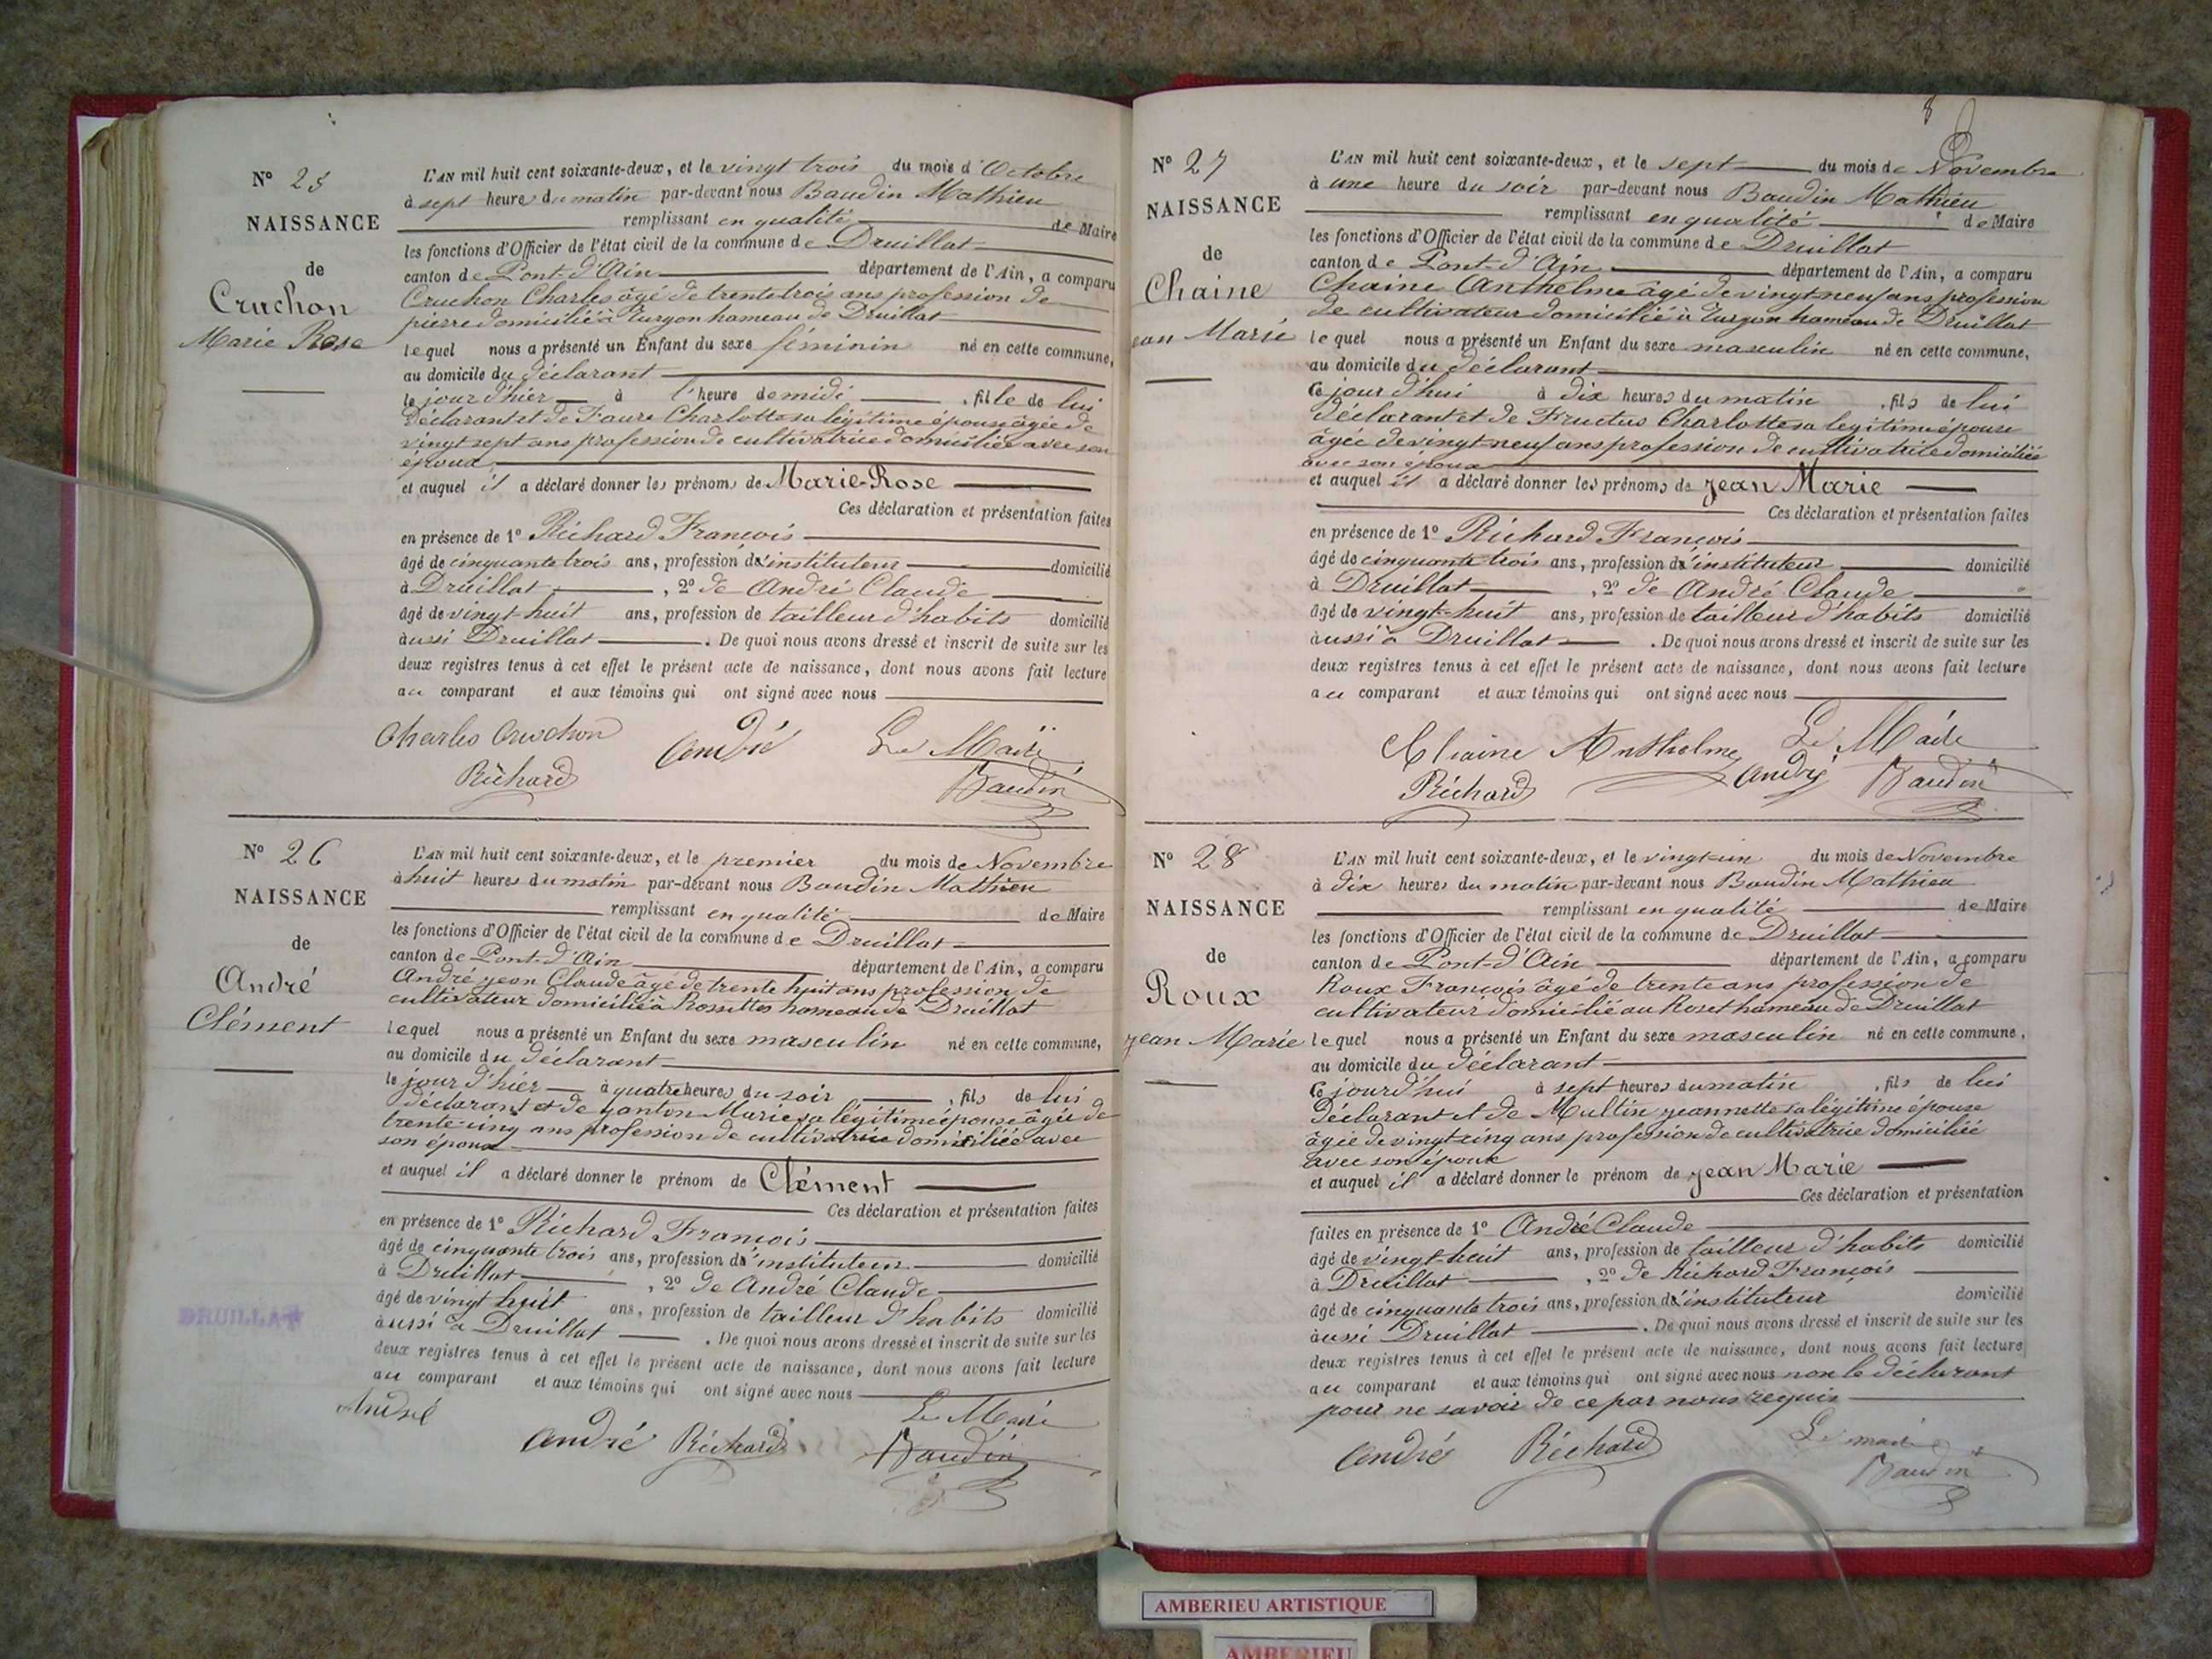 N° 25
NAISSANCE
de
Cruchon
Marie Rose
L'AN mil huit cent soixante-deux, et le vingt trois du mois d'Octobre
à sept heures du matin par-devant nous Baudin Mathieu
remplissant en qualité de Maire
les fonctions d'Officier de l'état civil de la commune de Druillat
canton de Pont-d'Ain département de l'Ain, a comparu
Cruchon Charles âgé de trente trois ans profession de
pierre domicilié à Turgon hameau de Druillat
lequel nous a présenté un Enfant du sexe féminin né en cette commune,
au domicile du déclarant
le jour d'hier à l'heure de midi, fille de lui
déclarant et de Faure Charlotte sa légitime épouse âgée de
vingt sept ans profession de cultivatrice domiciliée avec son
époux
et auquel il a déclaré donner les prénoms de Marie-Rose
Ces déclaration et présentation faites
en présence de 1° Richard François
âgé de cinquante trois ans, profession d'instituteur domicilié
à Druillat, 2° de André Claude
âgé de vingt-huit ans, profession de tailleur d'habits domicilié
aussi Druillat. De quoi nous avons dressé et inscrit de suite sur les
deux registres tenus à cet effet le présent acte de naissance, dont nous avons fait lecture
au comparant et aux témoins qui ont signé avec nous
Charles Cruchon André Le Maire
Richard Baudin
N° 26
NAISSANCE
de
André
Clément
DRUILLAT
L'AN mil huit cent soixante-deux, et le premier du mois de Novembre
à huit heures du matin par-devant nous Baudin Mathieu
remplissant en qualité de Maire
les fonctions d'Officier de l'état civil de la commune de Druillat
canton de Pont-d'Ain département de l'Ain, a comparu
André jean Claude âgé de trente huit ans profession de
cultivateur domicilié à Rossettes hameau de Druillat
lequel nous a présenté un Enfant du sexe masculin né en cette commune,
au domicile du déclarant
le jour d'hier à quatre heures du soir, fils de lui
déclarant et de Janton Marie sa légitime épouse âgée de
trente-cinq ans profession de cultivatrice domiciliée avec
son époux
et auquel il a déclaré donner le prénom de Clément
Ces déclaration et présentation faites
en présence de 1° Richard François
âgé de cinquante trois ans, profession d'instituteur domicilié
à Druillat, 2° de André Claude
âgé de vingt huit ans, profession de tailleur d'habits domicilié
aussi à Druillat. De quoi nous avons dressé et inscrit de suite sur les
deux registres tenus à cet effet le présent acte de naissance, dont nous avons fait lecture
au comparant et aux témoins qui ont signé avec nous
André Le Maire
André Richard Baudin
8
N° 27
NAISSANCE
de
Chaine
jean Marie
L'AN mil huit cent soixante-deux, et le sept du mois de Novembre
à une heure du soir par-devant nous Baudin Mathieu
remplissant en qualité de Maire
les fonctions d'Officier de l'état civil de la commune de Druillat
canton de Pont-d'Ain département de l'Ain, a comparu
Chaine Anthelme âgé de vingt-neuf ans profession
de cultivateur domicilié à Turgon hameau de Druillat
lequel nous a présenté un Enfant du sexe masculin né en cette commune,
au domicile du déclarant
Ce jour d'hui à dix heures du matin, fils de lui
déclarant et de Fructus Charlotte sa légitime épouse
âgée de vingt-neuf ans profession de cultivatrice domiciliée
avec son époux
et auquel il a déclaré donner les prénoms de jean Marie
Ces déclaration et présentation faites
en présence de 1° Richard François
âgé de cinquante trois ans, profession d'instituteur domicilié
à Druillat, 2° de André Claude
âgé de vingt-huit ans, profession de tailleur d'habits domicilié
aussi à Druillat. De quoi nous avons dressé et inscrit de suite sur les
deux registres tenus à cet effet le présent acte de naissance, dont nous avons fait lecture
au comparant et aux témoins qui ont signé avec nous
Chaine Anthelme Le Maire
Richard André Baudin
N° 28
NAISSANCE
de
Roux
jean Marie
L'AN mil huit cent soixante-deux, et le vingt-un du mois de Novembre
à dix heures du matin par-devant nous Baudin Mathieu
remplissant en qualité de Maire
les fonctions d'Officier de l'état civil de la commune de Druillat
canton de Pont-d'Ain département de l'Ain, a comparu
Roux François âgé de trente ans profession de
cultivateur domicilié au Roset hameau de Druillat
lequel nous a présenté un Enfant du sexe masculin né en cette commune,
au domicile du déclarant
Ce jourd'hui à sept heures du matin, fils de lui
déclarant et de Multin jeannette sa légitime épouse
âgée de vingt-cinq ans profession de cultivatrice domiciliée
avec son époux
et auquel il a déclaré donner le prénom de jean Marie
Ces déclaration et présentation
faites en présence de 1° André Claude
âgé de vingt-huit ans, profession de tailleur d'habits domicilié
à Druillat, 2° de Richard François
âgé de cinquante trois ans, profession d'instituteur domicilié
aussi Druillat. De quoi nous avons dressé et inscrit de suite sur les
deux registres tenus à cet effet le présent acte de naissance, dont nous avons fait lecture
au comparant et aux témoins qui ont signé avec nous non le déclarant
pour ne savoir de ce par nous requis
André Richard Le maire
Baudin
AMBERIEU ARTISTIQUE
AMBERIEU